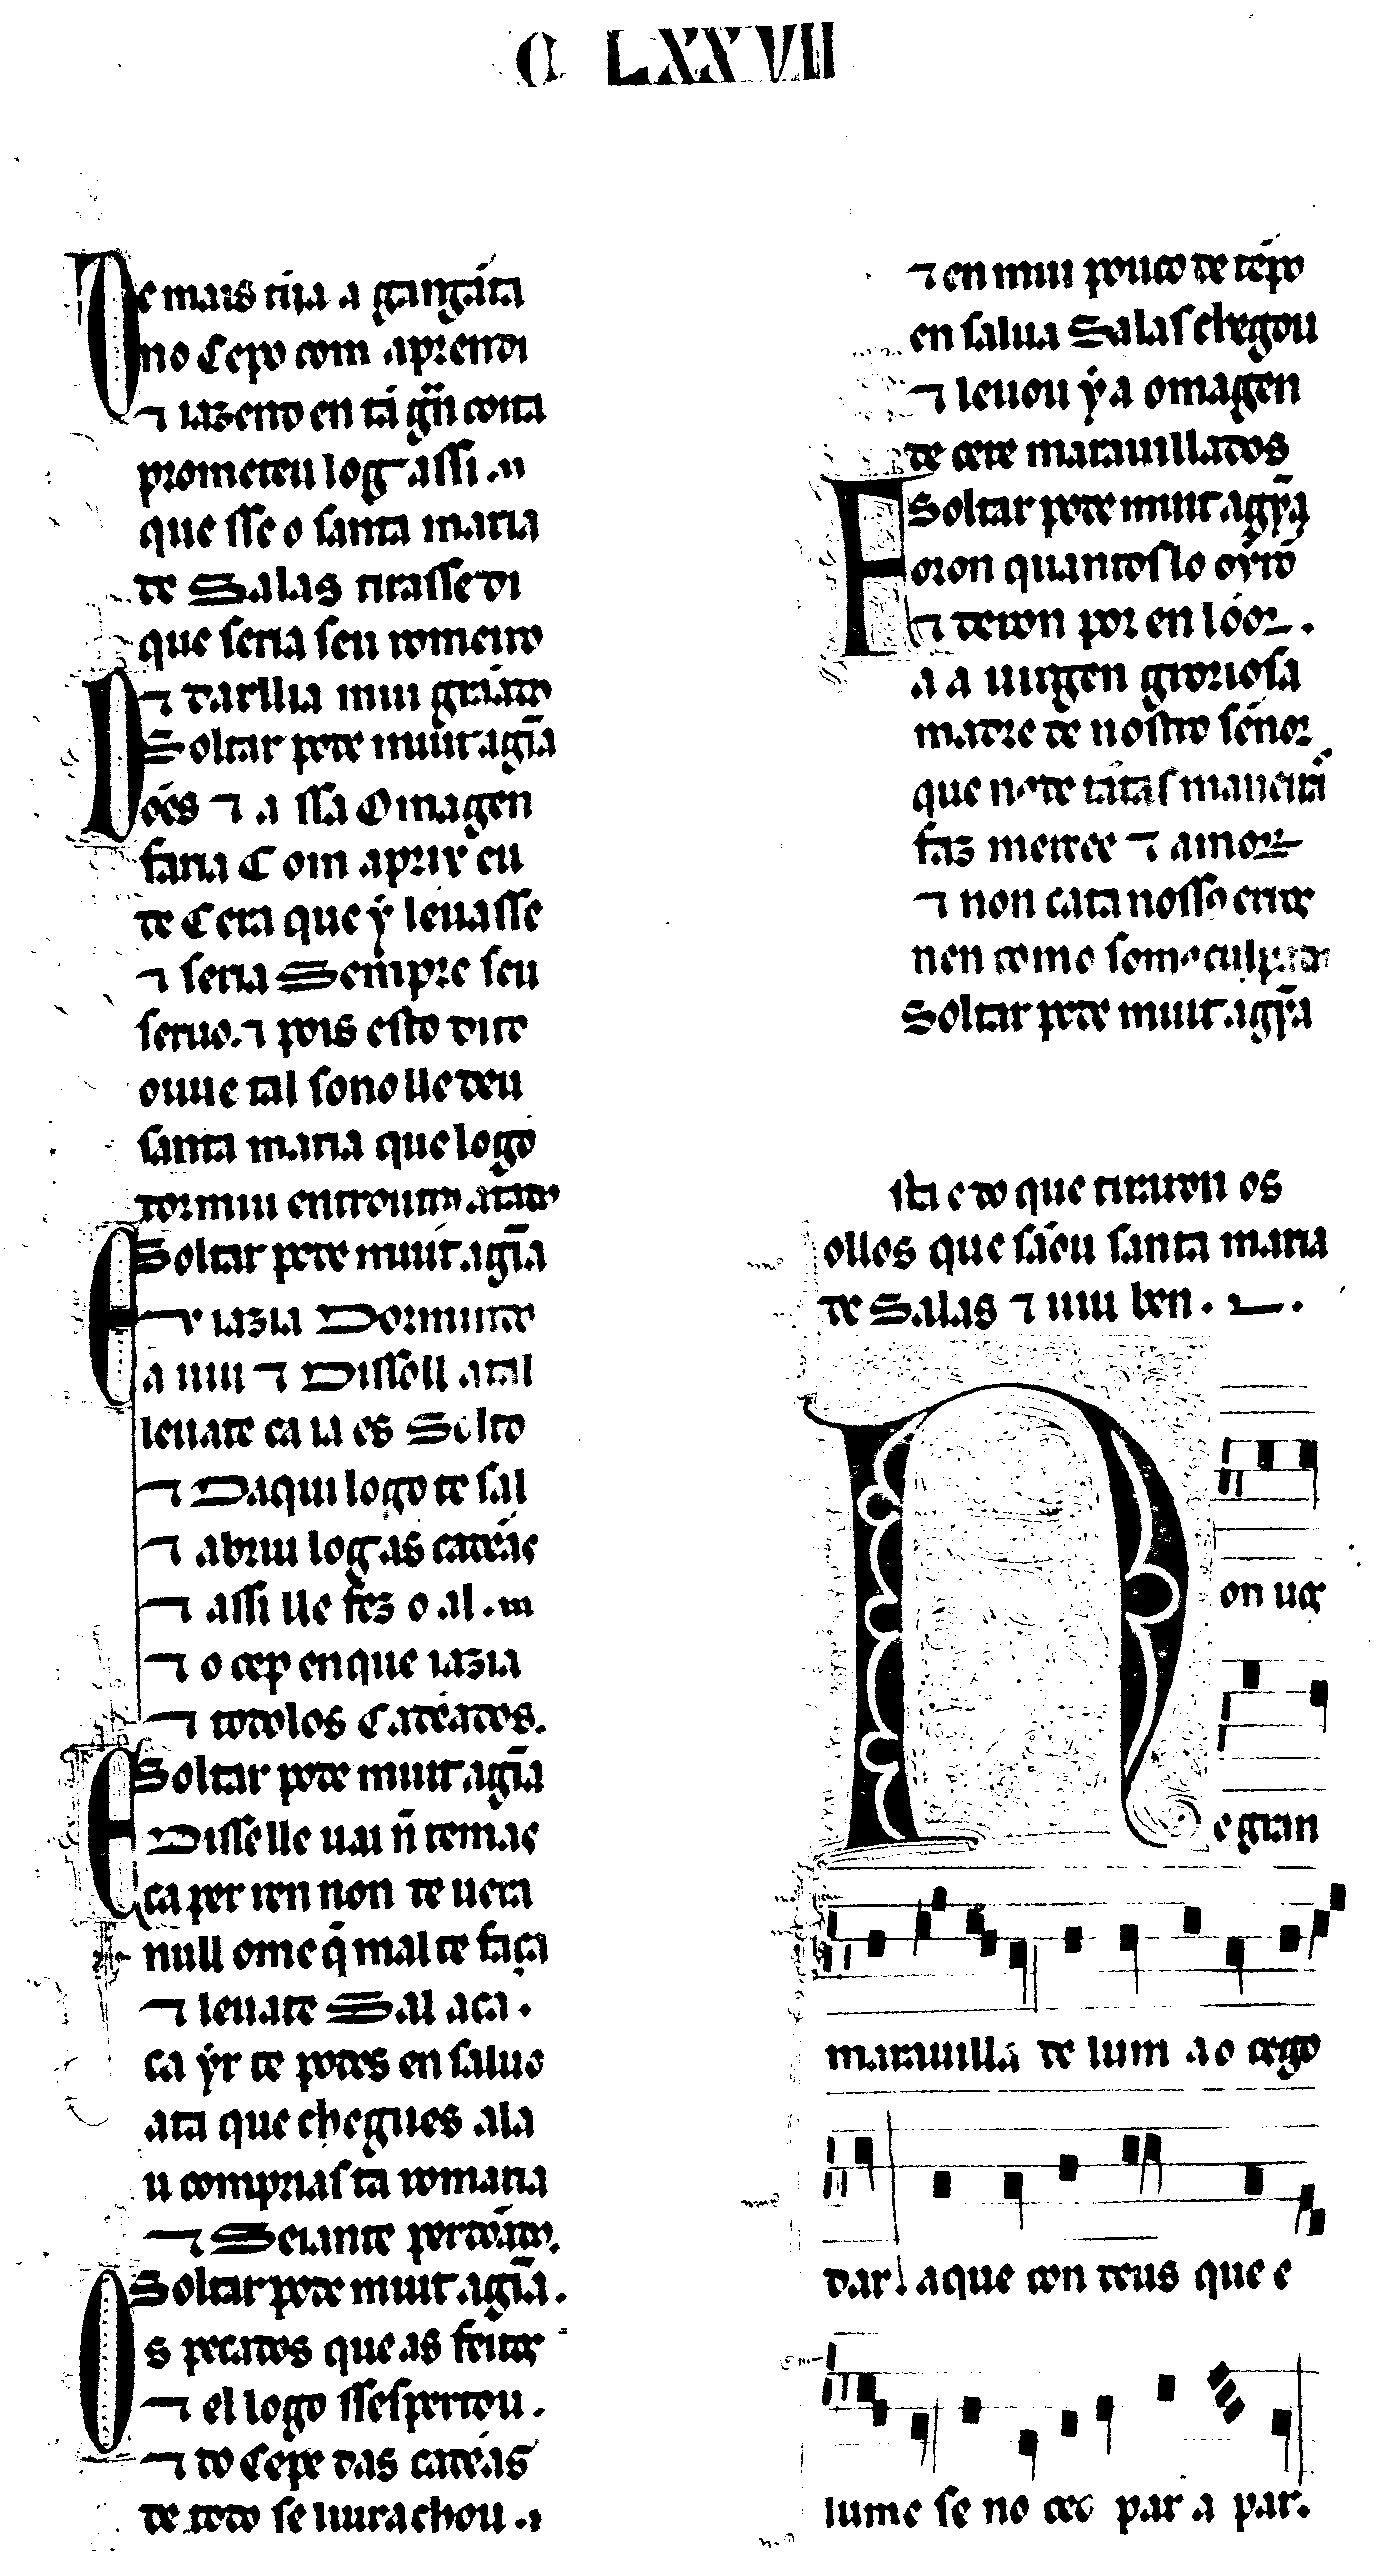 C LXXVII
De mais tiia a gargãta
no Cepo com aprendi
⁊ iazendo en tã grã coita
prometeu log assi.
que sse o santa maria
de Salas tirasse di
que seria seu romeiro
⁊ darllia mui
Soltar pode muit agĩa
Dões ⁊ a ssa Omagen
faria Com aprix eu
de Cera que ẏ leuasse
⁊ seria Sempre seu
seruo. ⁊ pois esto dito
ouue tal sono lle deu
santa maria que logo
dormiu
Soltar pede muit agĩa
E iazia Dormindo
a uiu ⁊ Dissoll atal
leuate ca ia es Solto
⁊ Daqui logo te sal
⁊ abriu log as cadẽas
⁊ assi lle fez o al.
⁊ o cep en que iazia
⁊ todolos Cadẽados.
Soltar pode muit agĩa
E Disselle uai ñ temas
ca per ren non te uera
null ome q̃ mal te faça
⁊ leuate Sal aca.
ca ẏr te podes en saluo
ata que chegues ala
u comprias ta romaria
⁊ Seiante perdõados.
Soltar pode muit agĩa.
Os pecados que as feitos
⁊ el logo ssespertou.
⁊ do Cepe das cadẽas
de todo se liurachou.
⁊ en mui pouco de tẽpo
en salua Salas chegou
⁊ leuou ẏ a omagen
de cere marauillados
Soltar pode muit agỹa
Foron quantos lo oyrõ
⁊ deron por en lóor.
a a uirgen groriosa
madre de nostro sẽnor
que
faz mercee ⁊ amor
⁊ non cata nosso erros
nen como somos
Soltar pede muit agỹa
Esta e do que tiraron os
ollos que sãou santa maria
de Salas ⁊ uiu ben.
Non uos
e gran
marauilla de lum ao cego
dar. aque con deus que e
lume se no ceo par a par.